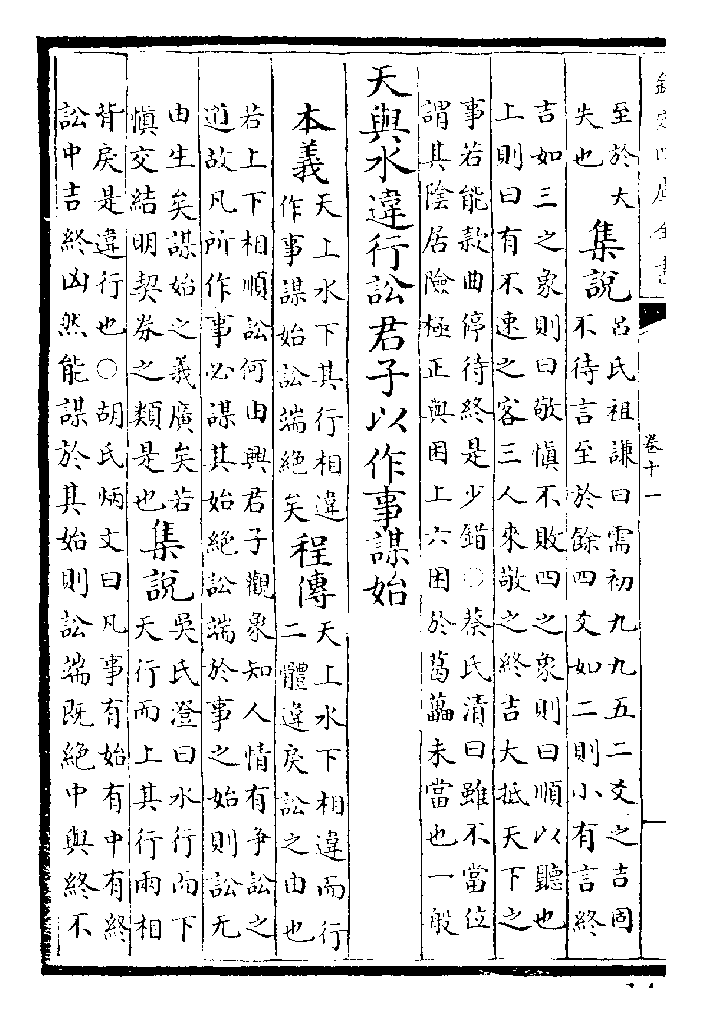 欽定四庫全書
卷十一
至於大
失也
集說
呂氏祖謙曰需初九九五二爻之吉固
不待言至於餘四爻如二則小有言終
吉如三之象則曰敬慎不敗四之象則曰順以聽也
上則曰有不速之客三人來敬之終吉大抵天下之
事若能款曲停待終是少錯○蔡氏清曰雖不當位
謂其陰居險極正與困上六困於葛藟未當也一般
天與水違行訟君子以作事謀始
本義
天上水下其行相違
作事謀始訟端絕矣
程傳
天上水下相違而行
二體違戾訟之由也
若上下相順訟何由興君子觀象知人情有爭訟之
道故凡所作事必謀其始絕訟端於事之始則訟无
由生矣謀始之義廣矣若
慎交結明契券之類是也
集說
吳氏澄曰水行而下
天行而上其行兩相
背戾是違行也○胡氏炳文曰凡事有始有中有終
訟中吉終凶然能謀於其始則訟端既絕中與終不